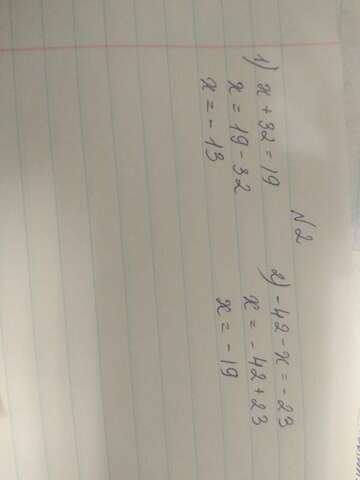 N2
1) x + 32 = 19
x = 19 - 32
x = - 13
2) - 42 - x = - 23
x = - 42 + 23
x = - 19